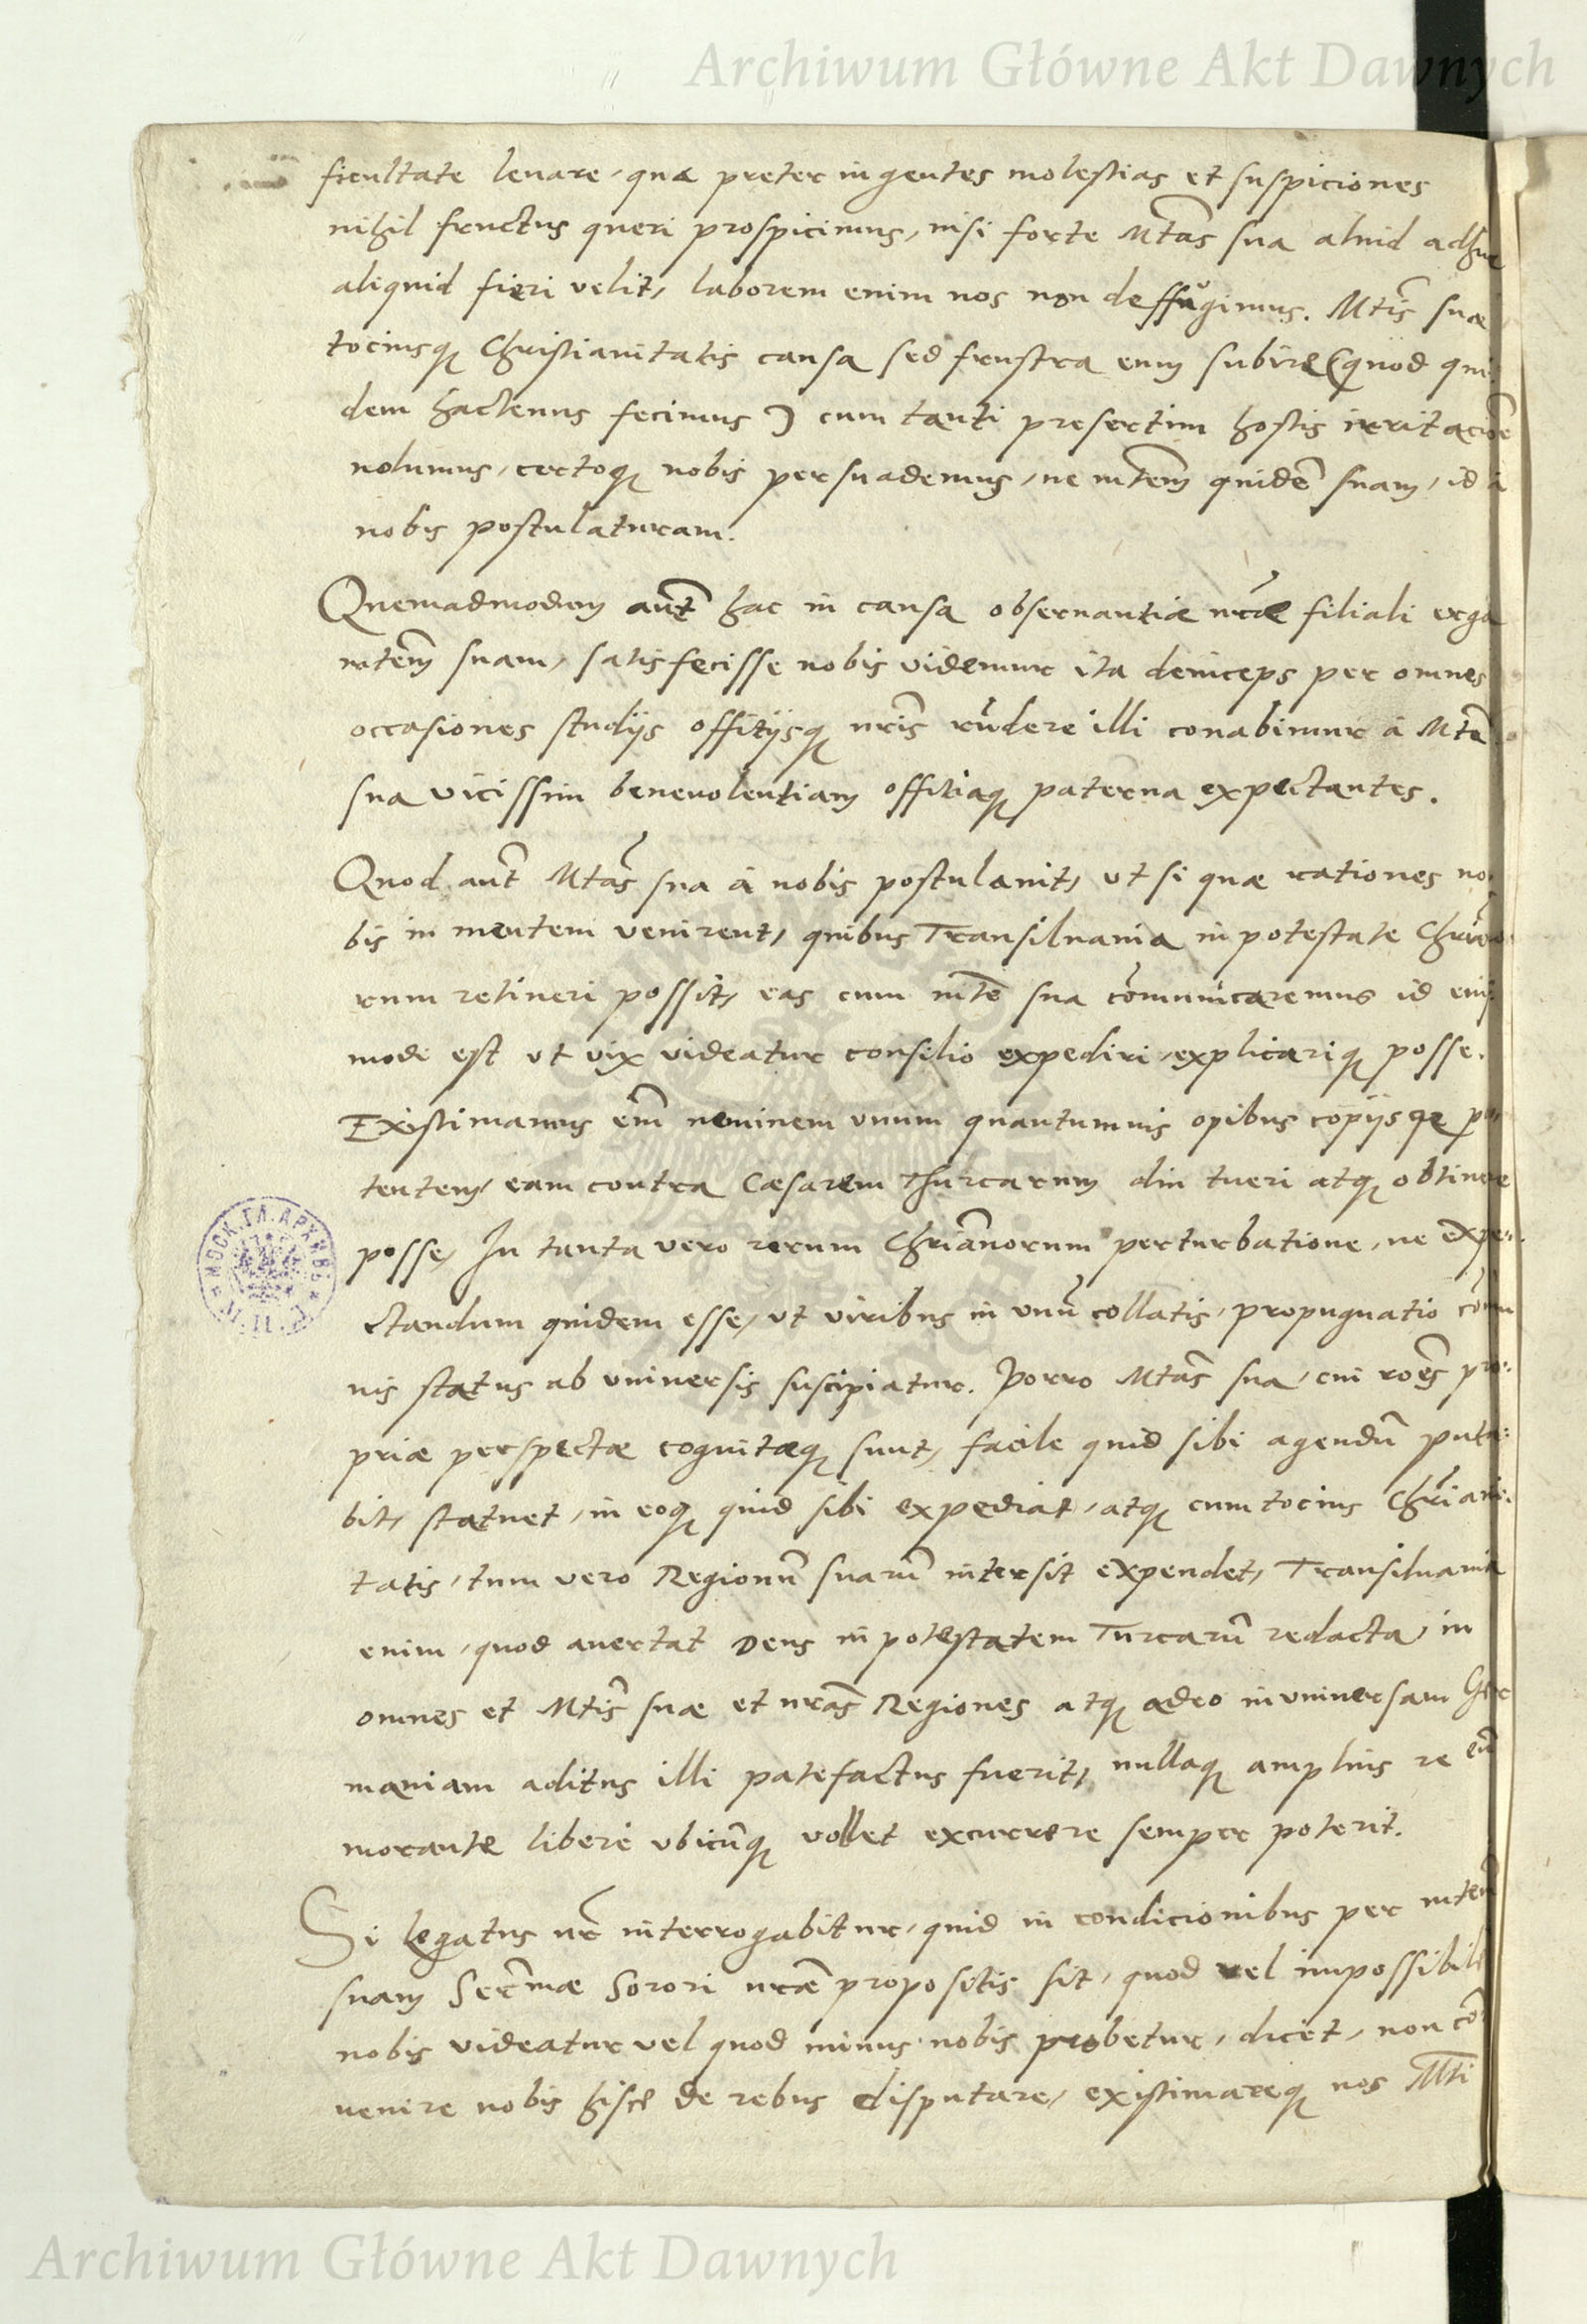 Archiwum Główne Akt Dawnych
ficultate leuare, quæ preter ingentes molestias et suspiciones
nihil fructus queri prospicimus, nisi forte Mtas sua aliud adhuc
aliquid fieri velit, laborem enim nos non deffugimus. Mtis suæ
tociusq Christianitatis causa sed frustra eum subire (quod qui
dem hactenus fecimus) cum tanti presertim hostis irritacione
nolumus, certoq nobis persuademus, ne mtem quidē suam, id à
nobis postulaturam.
Quemadmodum aūt hac in causa obseruantiæ nrae filiali erga
mtem suam, satisfecisse nobis videmur ita deinceps per omnes
occasiones studijs offitijsq nris rūdere illi conabimur à Mte
sua vicissim beneuolentiam offitiaq paterna expectantes.
Quod aūt Mtas sua à nobis postulauit, vt si quæ rationes no
bis in mentem venirent, quibus Transiluania in potestate Chriano
rum retineri possit, eas cum mte sua cōmunicaremus id eius
modi est vt vix videatur consilio expediri, explicariq posse.
Existimamus em̄ neminem vnum quantumuis opibus copijsqe po
tentem, eam contra Cæsarem Thurcarum diu tueri atq obtinere
posse, In tanta vero rerum Chrianorum perturbatione, ne expe
ctandum quidem esse, vt viribus in vnū collatis, propugnatio cōmu
nis status ab vniuersis suscipiatur. Porro Mtas sua, cui roēs pro
priæ perspectæ cognitæq sunt, facile quid sibi agendū puta
bit, statuet, in eoq quid sibi expediat, atq cum tocius Chriani
tatis, tum vero Regionū suarū intersit expendet, Transiluania
enim, quod auertat Deus in potestatem Turcarū redacta, in
omnes et Mtis suæ et nras Regiones atq adeo in vniuersam Ger
maniam aditus illi patefactus fuerit, nullaq amplius re eū
morante libere vbicūq vollet excurrere semper poterit.
Si legatus nr interrogabitur, quid in condicionibus per mtem
suam Sermæ Sorori nræ propositis sit, quod vel impossibile
nobis videatur vel quod minus nobis probetur, dicet, non cō
uenire nobis hisce de rebus disputare, existimareq nos Mti
МОСК. ГЛ. АРХИВЪ
Archiwum Główne Akt Dawnych